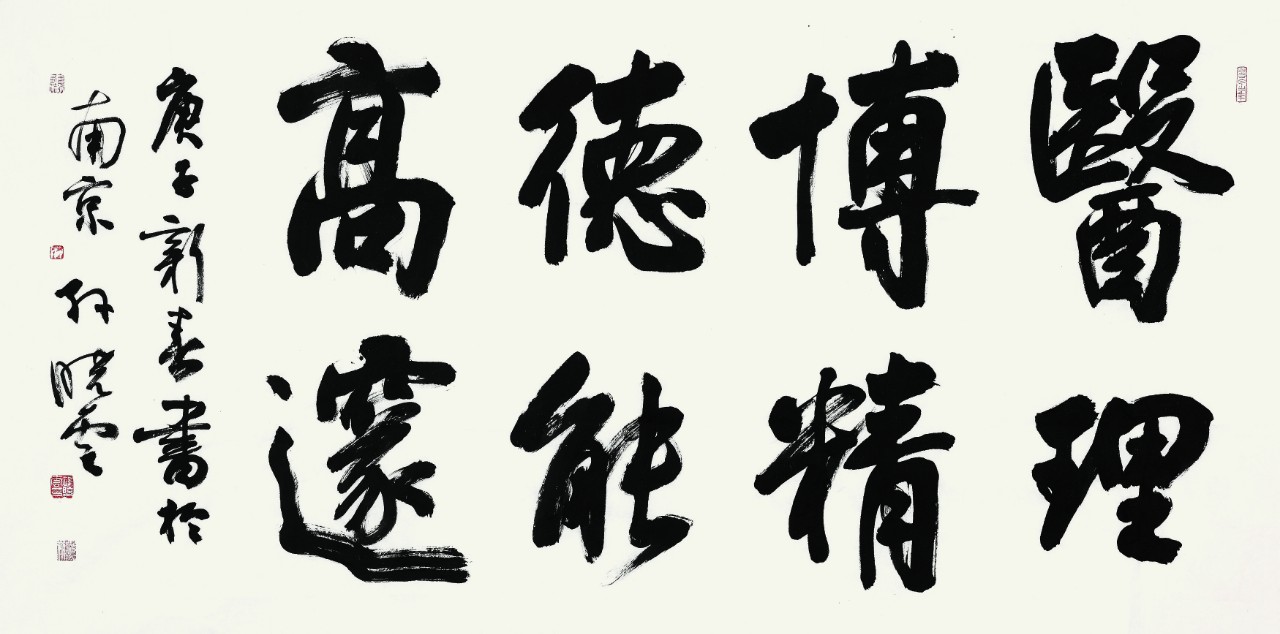 醫理
博精
德能
高邃
庚子新春書於
南京 孙晓雲